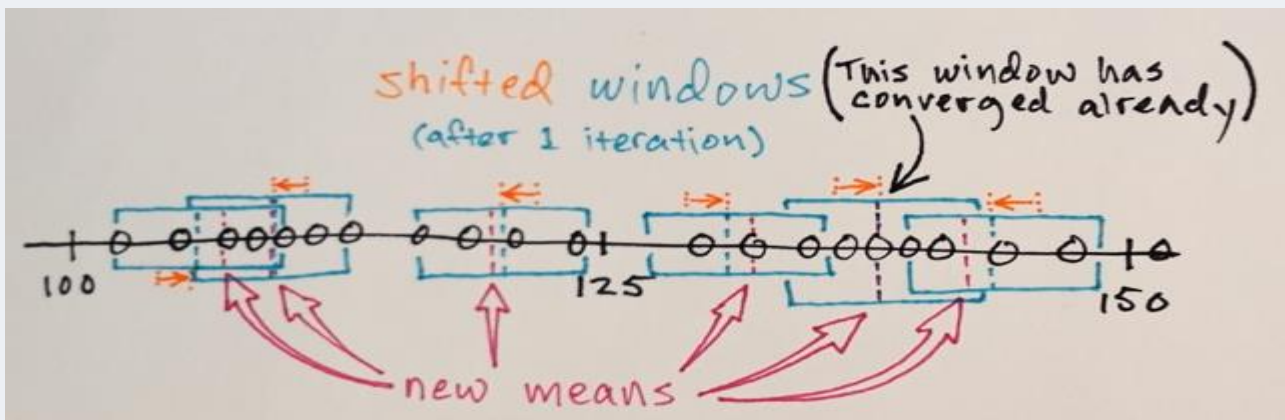 shifted windows (This window has
converged already)
(after 1 iteration)
100
125
150
new means